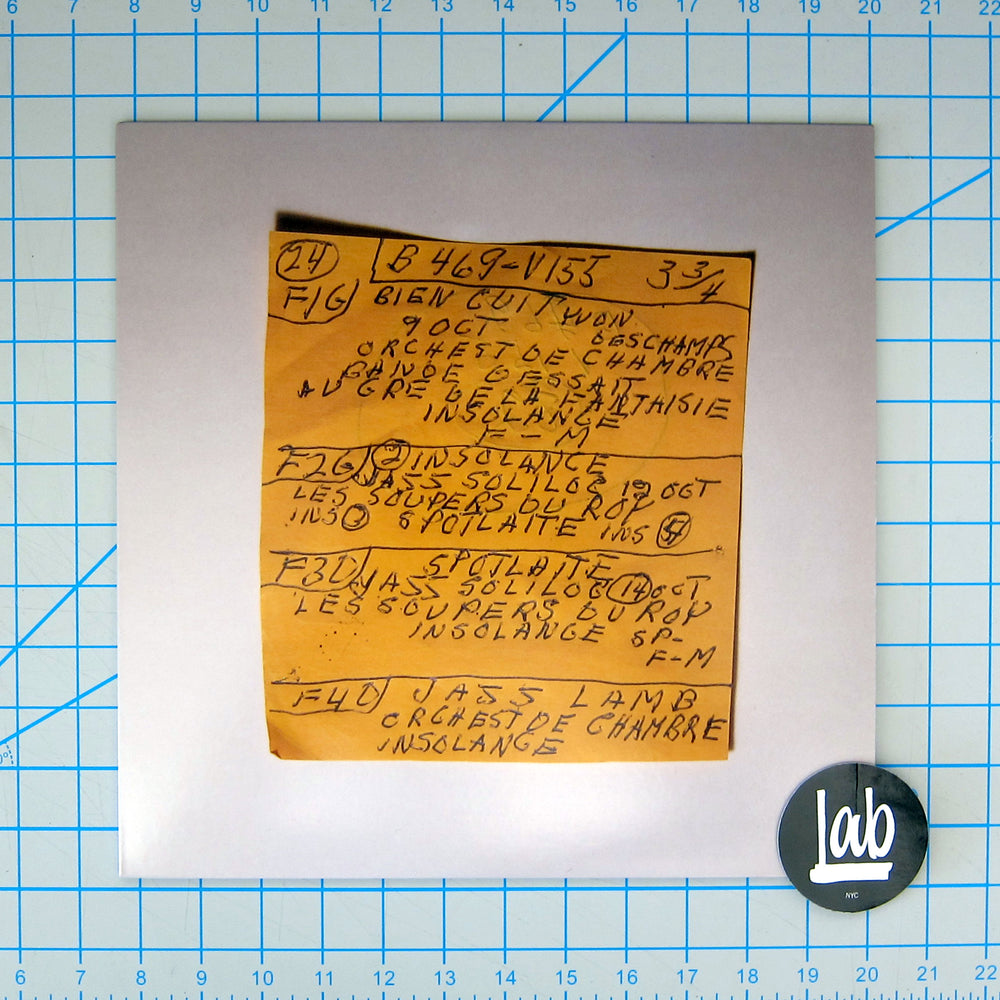 6 7 8 9 10 11 12 13 14 15 16 17 18 19 20 21 22
24 B 469-V155 3 3/4
F1G BIEN CUIT YVON
9 OCT DESCHAMPS
ORCHEST DE CHAMBRE
BANDE DESSAIT
AU GRE DE LA FANTAISIE
INSOLANGE
F-M
F2G 2 INSOLANGE
JASS SOLILOC 12 OCT
LES SOUPERS DU ROY
INS 3 SPOTLAITE INS
F3D SPOTLAITE
JASS SOLILOC 14 OCT
LES SOUPERS DU ROY
INSOLANGE SP-
F-M
F4D JASS LAMB
ORCHEST DE CHAMBRE
INSOLANGE
Lab
NYC
6 7 8 9 10 11 12 13 14 15 16 17 18 19 20 21 22